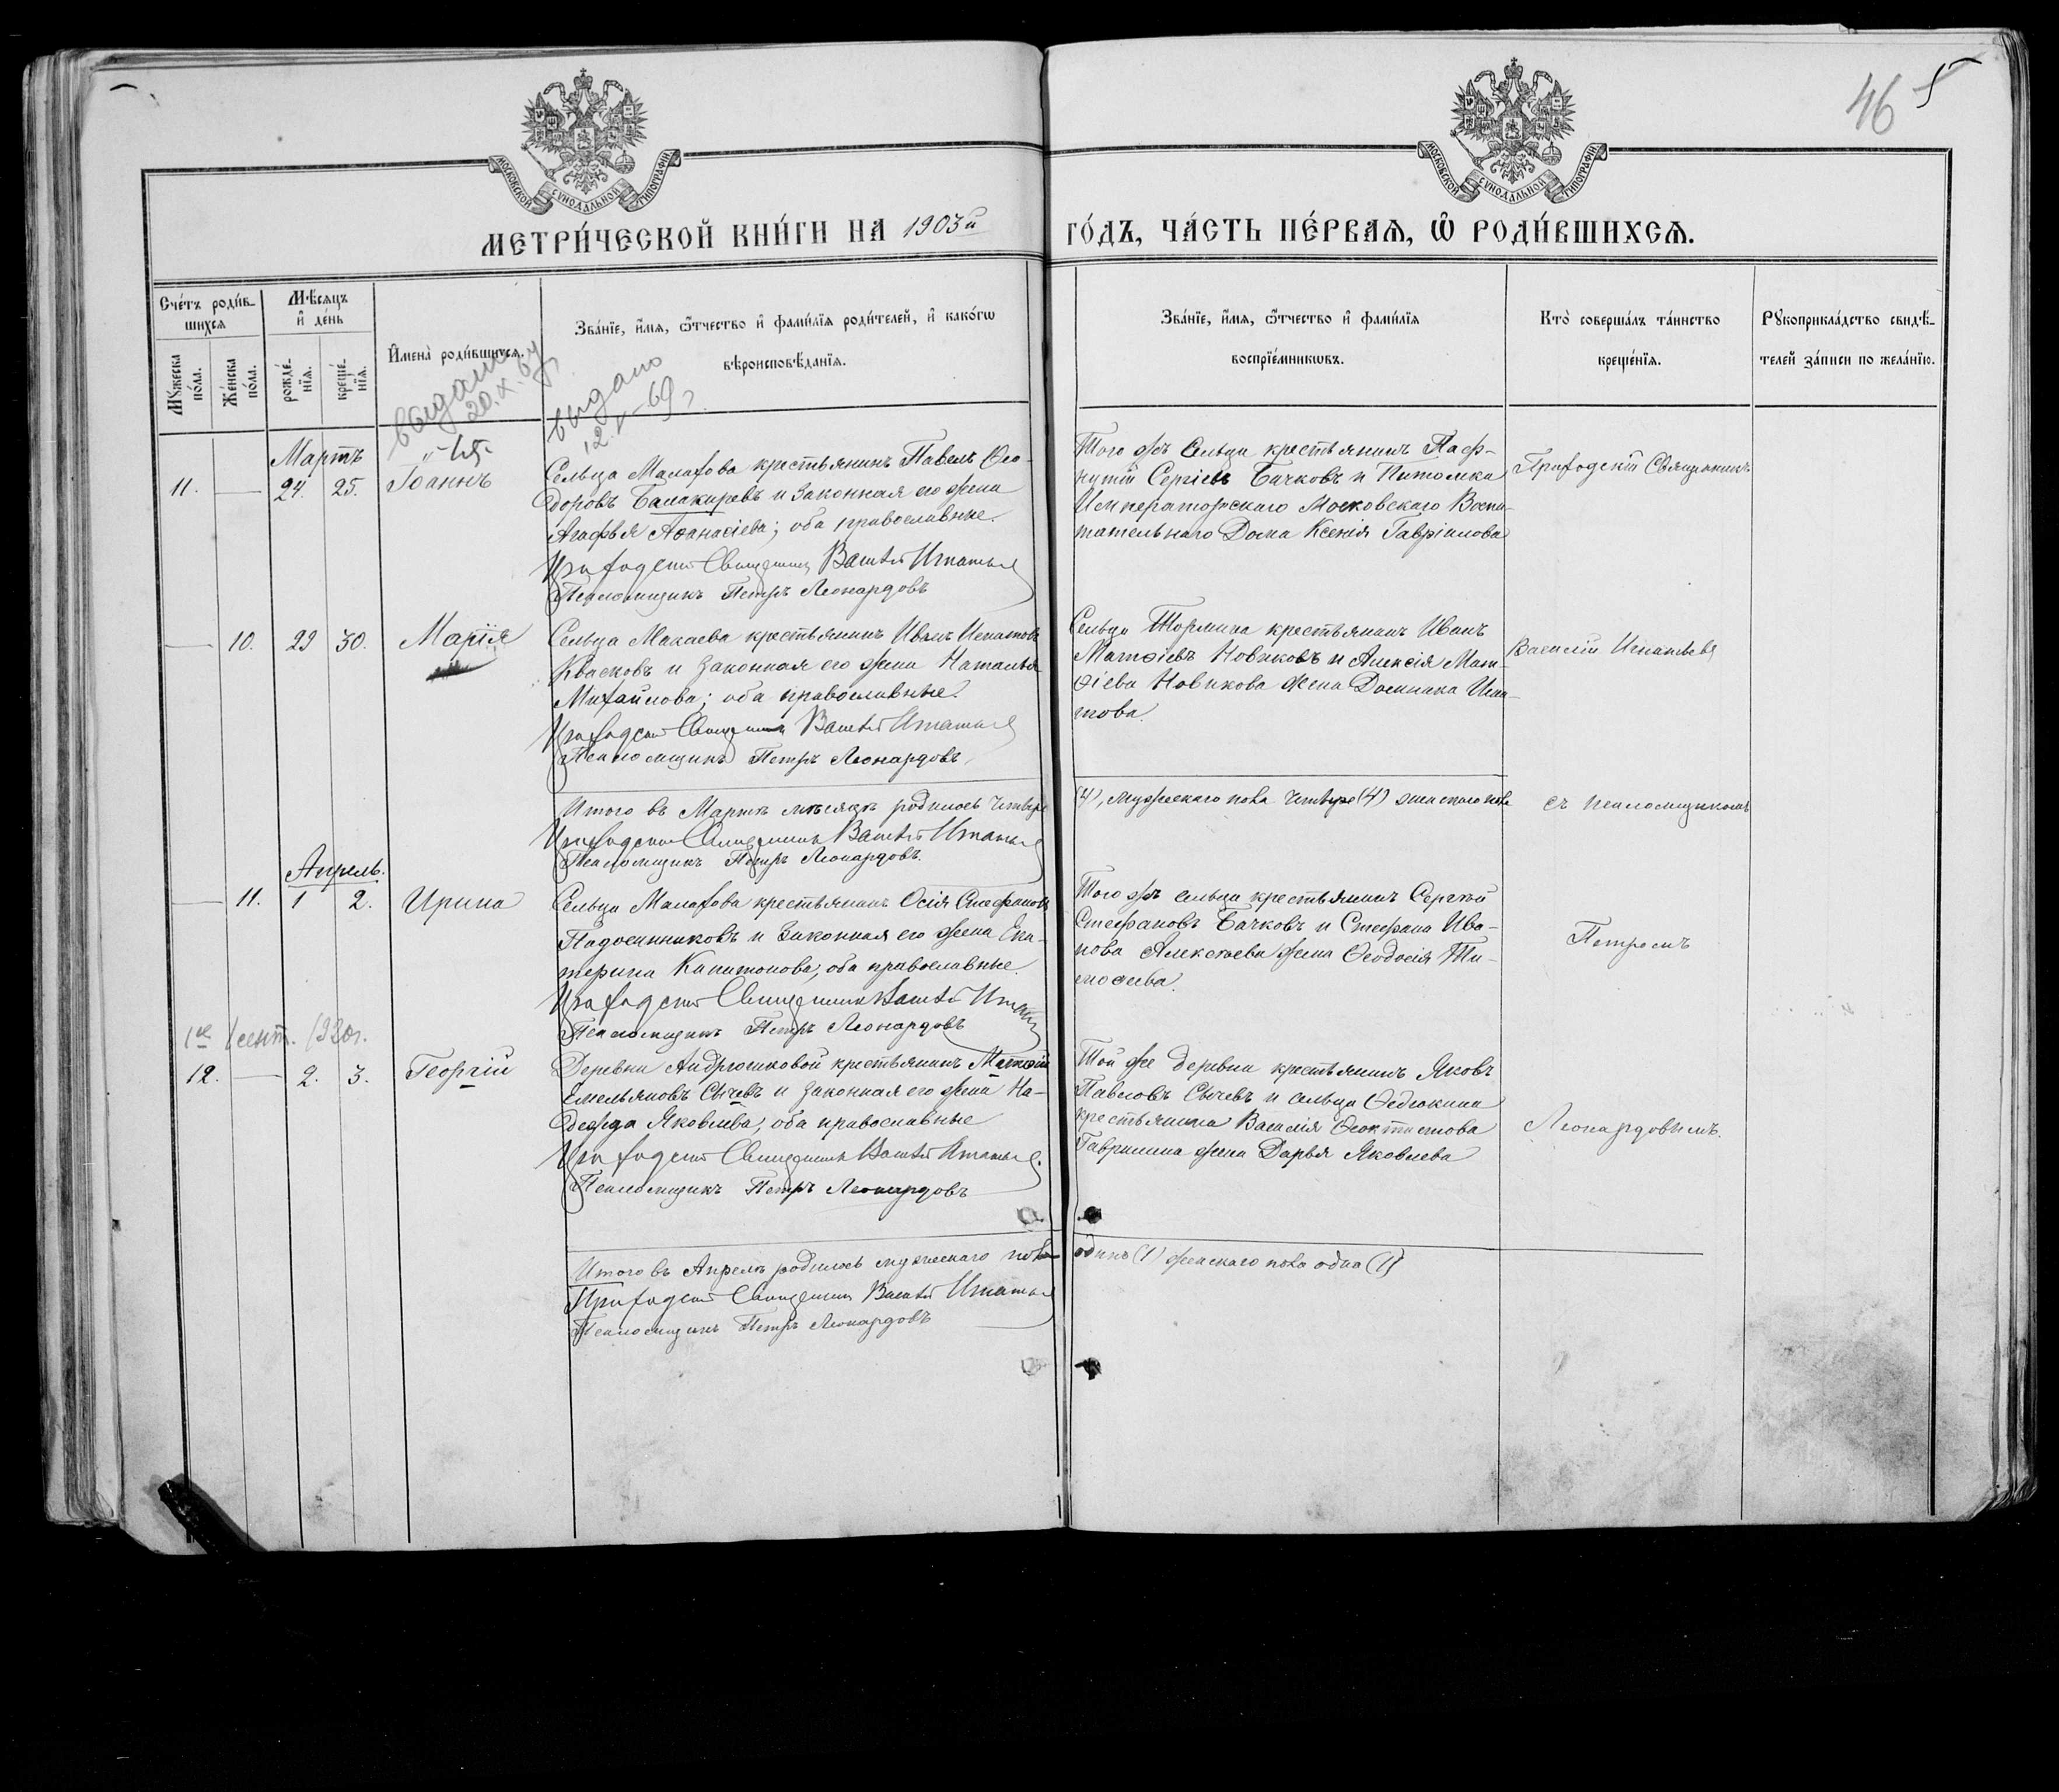 46
МОСКОВСКОЙ СѴНОДАЛЬНОЙ ТИПОГРАФІИ
МОСКОВСКОЙ СѴНОДАЛЬНОЙ ТИПОГРАФІИ
МЕТРИ́ЧЕСКОЙ КНИ́ГИ НА 1903й ГО́ДЪ, ЧА́СТЬ ПЕ́РВАѦ, Ѿ РОДИ́ВШИХСѦ.
Сче́тъ роди́в-
шихсѧ
Мѣ́сѧцъ
и҆ де́нь
И҆мена̀ роди́вшихсѧ.
Зва́нїе, и҆́мѧ, ѻ҆́тчество и҆ фами́лїѧ роди́телей, и҆ како́гѡ
вѣроисповѣ́данїѧ.
Зва́нїе, и҆́мѧ, ѻ҆́тчество и҆ фами́лїѧ
воспрїе́мникѡвъ.
Кто̀ соверша́лъ та́инство
креще́нїѧ.
Рꙋкоприкла́дство свидѣ́-
телей за́писи по жела́нїю.
Мꙋ́жеска
по́ла.
Же́нска
по́ла.
рожде́-
нїѧ.
креще́-
нїѧ.
выдано
20.X.
выдано
12. V-69 г.
Мартъ
11. 24. 25. Іоаннъ
Сельца Малахова крестьянинъ Павелъ Ѳео-
доровъ Балакиревъ и законная его жена
Агафья Аѳанасіева; оба православные.
Приходскій Священникъ Василій Игнатьевъ
Псаломщикъ Петръ Леонардовъ
Того жъ сельца крестьянинъ Паф-
нутій Сергіевъ Бачковъ и Питомка
Императорскаго Московскаго Воспи-
тательнаго Дома Ксенія Гавріилова
Приходскій Священникъ
10. 29 30. Марія
Сельца Макаева крестьянинъ Иванъ Игнатовъ
Квасковъ и законная его жена Наталья
Михайлова; оба православные.
Приходскій Священникъ Василій Игнатьевъ
Псаломщикъ Петръ Леонардовъ
Сельца Тормина крестьянинъ Иванъ
Матѳіевъ Новиковъ и Алексія Мат-
ѳіева Новикова жена Домника Игна-
това.
Василій Игнатьевъ
Итого въ Мартѣ мѣсяцѣ родилось четыре (4), мужескаго пола четыре (4) женскаго пола
Приходскій Священникъ Василій Игнатьевъ
Псаломщикъ Петръ Леонардовъ.
съ псаломщикомъ
Апрель.
11. 1 2. Ирина
Сельца Малахова крестьянинъ Осія Стефановъ
Падосинниковъ и законная его жена Ека-
терина Капитонова; оба православные.
Приходскій Священникъ Василій Игнатьевъ
Псаломщикъ Петръ Леонардовъ
Того жъ сельца крестьянинъ Сергѣй
Стефановъ Бачковъ и Стефана Ива-
нова Алексѣева жена Ѳеодосія Ти-
моѳеева.
Петромъ
12. 2. 3. Георгій
Деревни Андрюшковой крестьянинъ Матѳей
Емельяновъ Сычевъ и законная его жена На-
дежда Яковлева; оба православные
Приходскій Священникъ Василій Игнатьевъ.
Псаломщикъ Петръ Леонардовъ
Той же деревни крестьянинъ Яковъ
Павловъ Сычевъ и сельца Ѳедюкина
крестьянина Василія Ѳеоктистова
Гаврилина жена Дарья Яковлева
Леонардовымъ.
Итого въ Апрелѣ родилось мужескаго пола одинъ (1) женскаго пола одна (1)
Приходскій Священникъ Василій Игнатьевъ
Псаломщикъ Петръ Леонардовъ